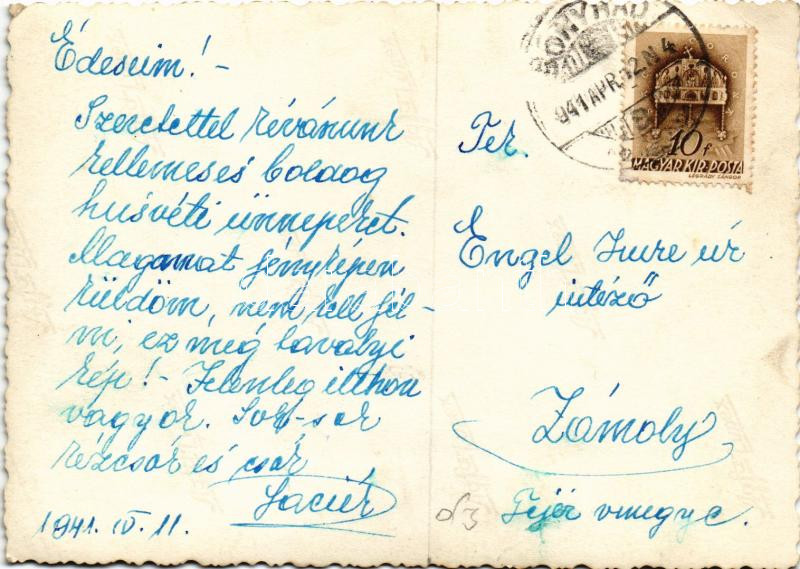 Édeseim! -
Szeretettel kívánunk
kellemes és boldog
husvéti ünnepeket.
Magamat fényképen
küldöm, nem kell fél-
ni, ez még tavalyi
kép! - Jelenleg itthon
vagyok. Sok-sok
kézcsók és csók
Laciék
1941. IV. 11.
BONYHÁD
941 APR. 12. N 4
MAGYAR KIR. POSTA
10 f
LÉGRÁDY SÁNDOR
Engel Imre úr
intéző
Zámoly
Fejér vmegye.